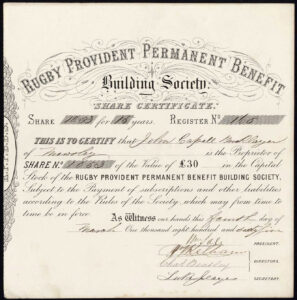 RUGBY PROVIDENT PERMANENT BENEFIT
Building Society.
SHARE CERTIFICATE.
SHARE 1853 for 15 years. REGISTER No. 165
THIS IS TO CERTIFY that John Capell
of is the Proprietor of
SHARE No. 1853 of the Value of £30 in the Capital
Stock of the RUGBY PROVIDENT PERMANENT BENEFIT BUILDING SOCIETY.
Subject to the Payment of subscriptions and other liabilities
according to the Rules of the Society which may from time to
time be in force.
As Witness our hands this day of
March One thousand eight hundred and
PRESIDENT.
DIRECTORS.
SECRETARY.